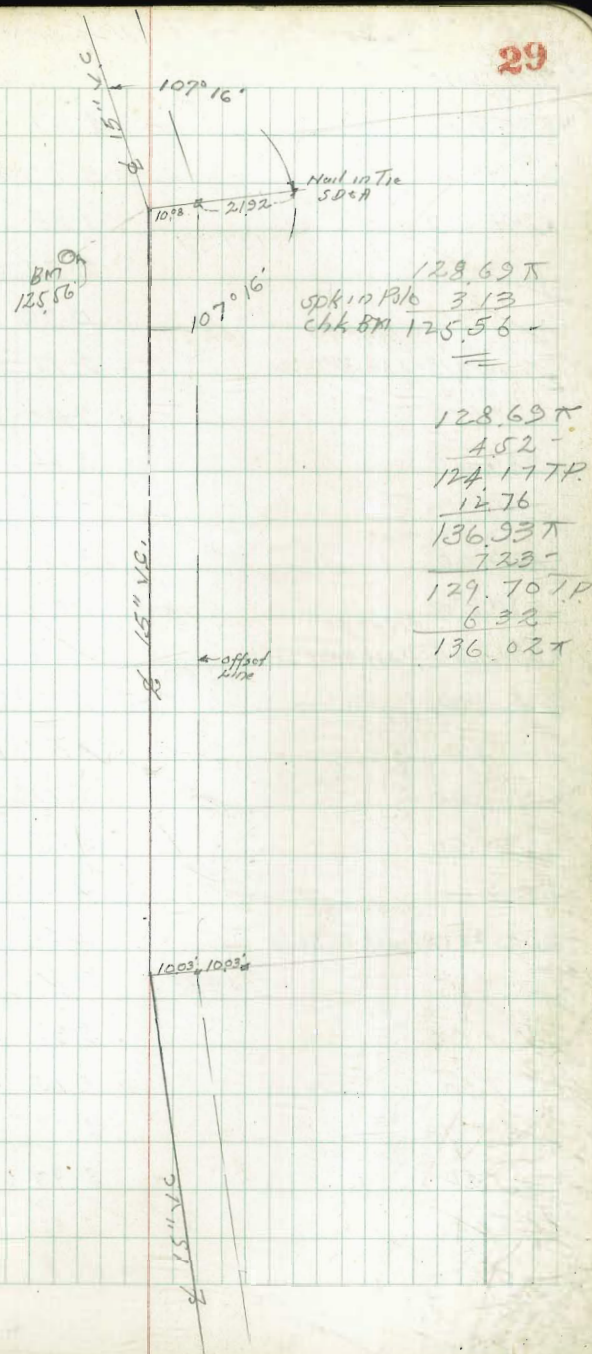 29
℄ 15" V.C.
107° 16'
Nail in Tie
SD&A
10.98
21.92
BM
125.56
107° 16'
128.69 π
spk in Pole 3.13
chk BM 125.56 -
128.69 π
4.52 -
124.17 T.P.
12.76
136.93 π
7.23 -
129.70 T.P.
6.32
136.02 π
℄ 15" V.C.
offset
Line
10.03' 10.03'
℄ 15" V.C.